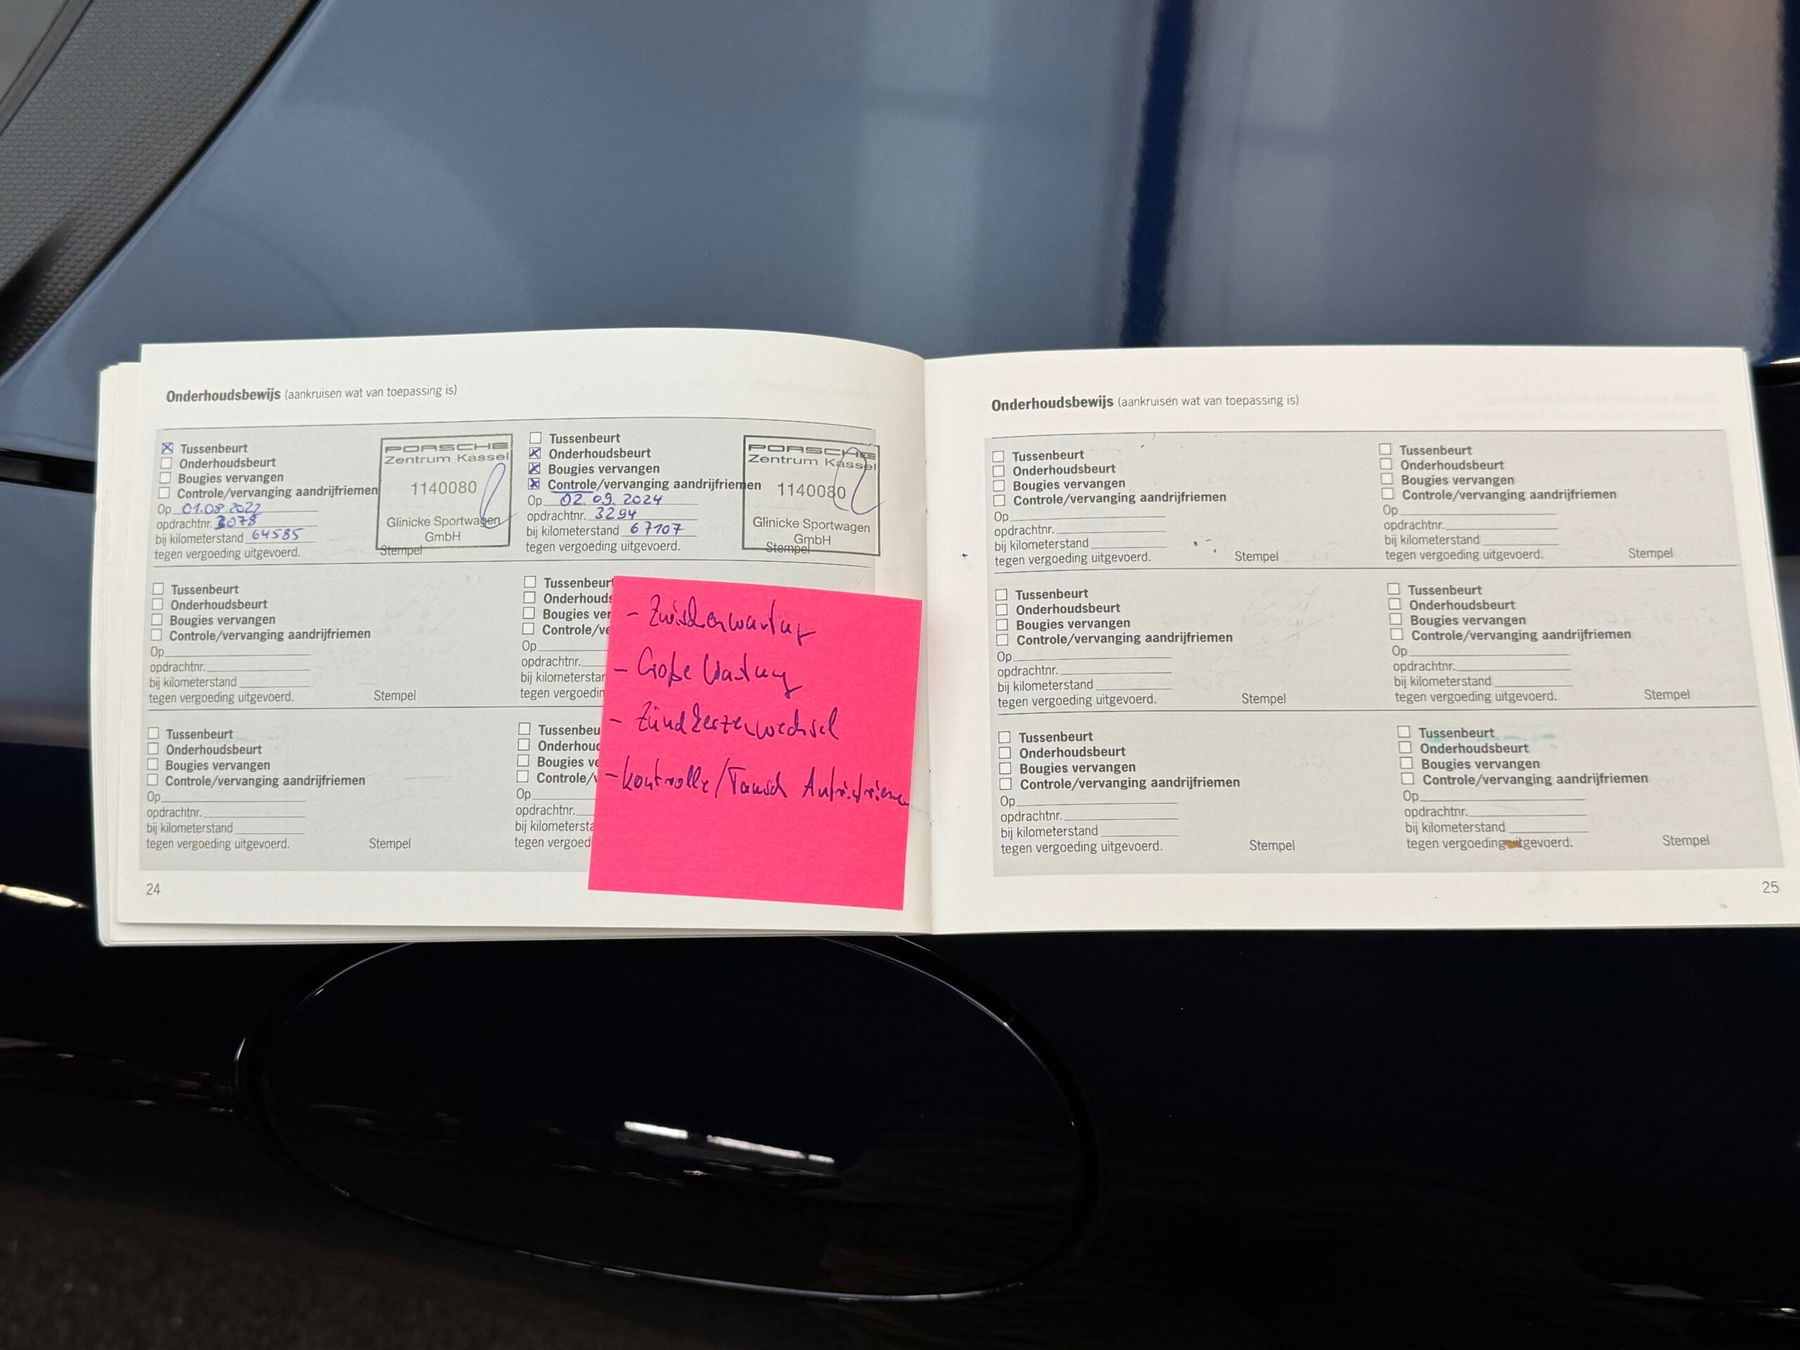 Onderhoudsbewijs (aankruisen wat van toepassing is)
Tussenbeurt
Onderhoudsbeurt
Bougies vervangen
Controle/vervanging aandrijfriemen
Op 01.08.2022
opdrachtnr. 3078
bij kilometerstand 64585
tegen vergoeding uitgevoerd.
PORSCHE
Zentrum Kassel
1140080
Glinicke Sportwagen
GmbH
Stempel
Tussenbeurt
Onderhoudsbeurt
Bougies vervangen
Controle/vervanging aandrijfriemen
Op 02.09.2024
opdrachtnr. 3294
bij kilometerstand 67107
tegen vergoeding uitgevoerd.
PORSCHE
Zentrum Kassel
1140080
Glinicke Sportwagen
GmbH
Stempel
Tussenbeurt
Onderhoudsbeurt
Bougies vervangen
Controle/vervanging aandrijfriemen
Op
opdrachtnr.
bij kilometerstand
tegen vergoeding uitgevoerd.
Stempel
Tussenbeur
Onderhouds
Bougies ver
Controle/ve
Op
opdrachtnr.
bij kilometerstar
tegen vergoedin
Tussenbeurt
Onderhoudsbeurt
Bougies vervangen
Controle/vervanging aandrijfriemen
Op
opdrachtnr.
bij kilometerstand
tegen vergoeding uitgevoerd.
Stempel
Tussenbeu
Onderhoud
Bougies ve
Controle/v
Op
opdrachtnr.
bij kilometersta
tegen vergoed
- Zwischenwartung
- Große Wartung
- Zündkerzenwechsel
- Kontrolle/Tausch Antriebsriemen
24
Onderhoudsbewijs (aankruisen wat van toepassing is)
Tussenbeurt
Onderhoudsbeurt
Bougies vervangen
Controle/vervanging aandrijfriemen
Op
opdrachtnr.
bij kilometerstand
tegen vergoeding uitgevoerd.
Stempel
Tussenbeurt
Onderhoudsbeurt
Bougies vervangen
Controle/vervanging aandrijfriemen
Op
opdrachtnr.
bij kilometerstand
tegen vergoeding uitgevoerd.
Stempel
Tussenbeurt
Onderhoudsbeurt
Bougies vervangen
Controle/vervanging aandrijfriemen
Op
opdrachtnr.
bij kilometerstand
tegen vergoeding uitgevoerd.
Stempel
Tussenbeurt
Onderhoudsbeurt
Bougies vervangen
Controle/vervanging aandrijfriemen
Op
opdrachtnr.
bij kilometerstand
tegen vergoeding uitgevoerd.
Stempel
Tussenbeurt
Onderhoudsbeurt
Bougies vervangen
Controle/vervanging aandrijfriemen
Op
opdrachtnr.
bij kilometerstand
tegen vergoeding uitgevoerd.
Stempel
Tussenbeurt
Onderhoudsbeurt
Bougies vervangen
Controle/vervanging aandrijfriemen
Op
opdrachtnr.
bij kilometerstand
tegen vergoeding uitgevoerd.
Stempel
25